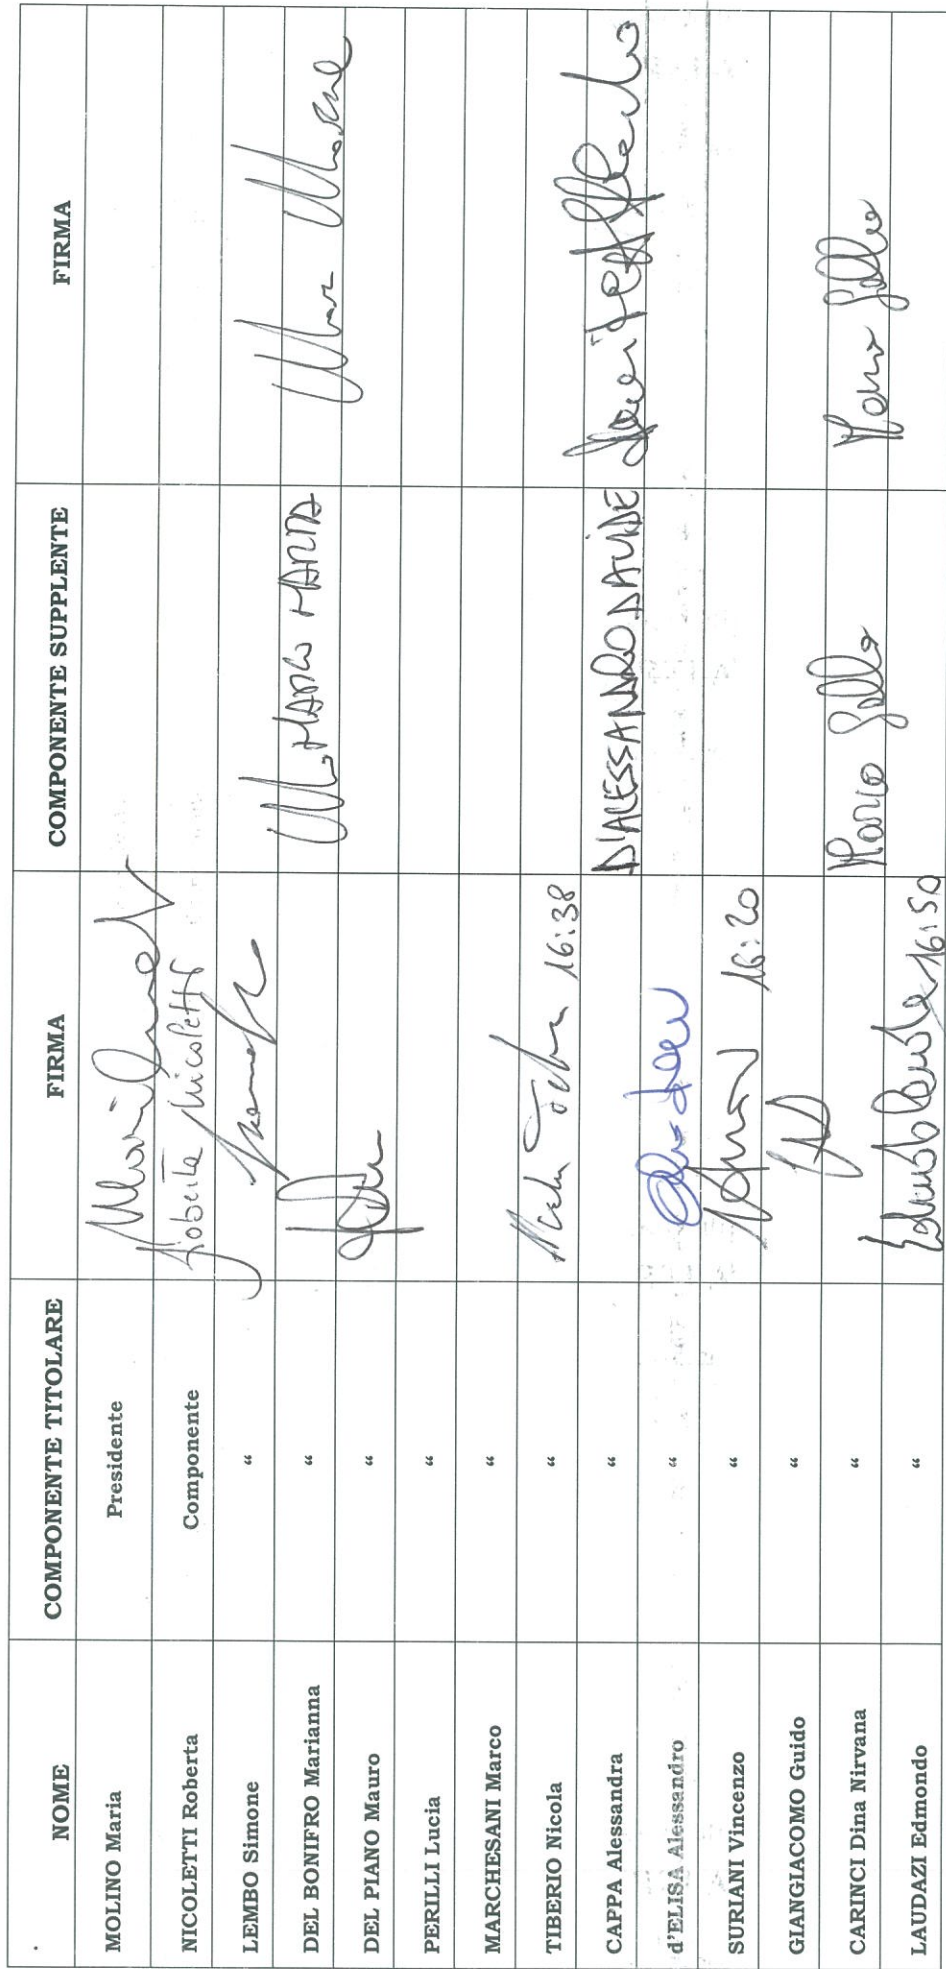 NOME COMPONENTE TITOLARE FIRMA COMPONENTE SUPPLENTE FIRMA
MOLINO Maria Presidente
NICOLETTI Roberta Componente Roberta Nicoletti
LEMBO Simone “
DEL BONIFRO Marianna “
DEL PIANO Mauro “
PERILLI Lucia “
MARCHESANI Marco “
TIBERIO Nicola “ 16:38
CAPPA Alessandra “ D'ALESSANDRO DAVIDE
d'ELISA Alessandro “
SURIANI Vincenzo “ 16:20
GIANGIACOMO Guido “
CARINCI Dina Nirvana “ Marco Gallo Marco Gallo
LAUDAZI Edmondo “ 16:50